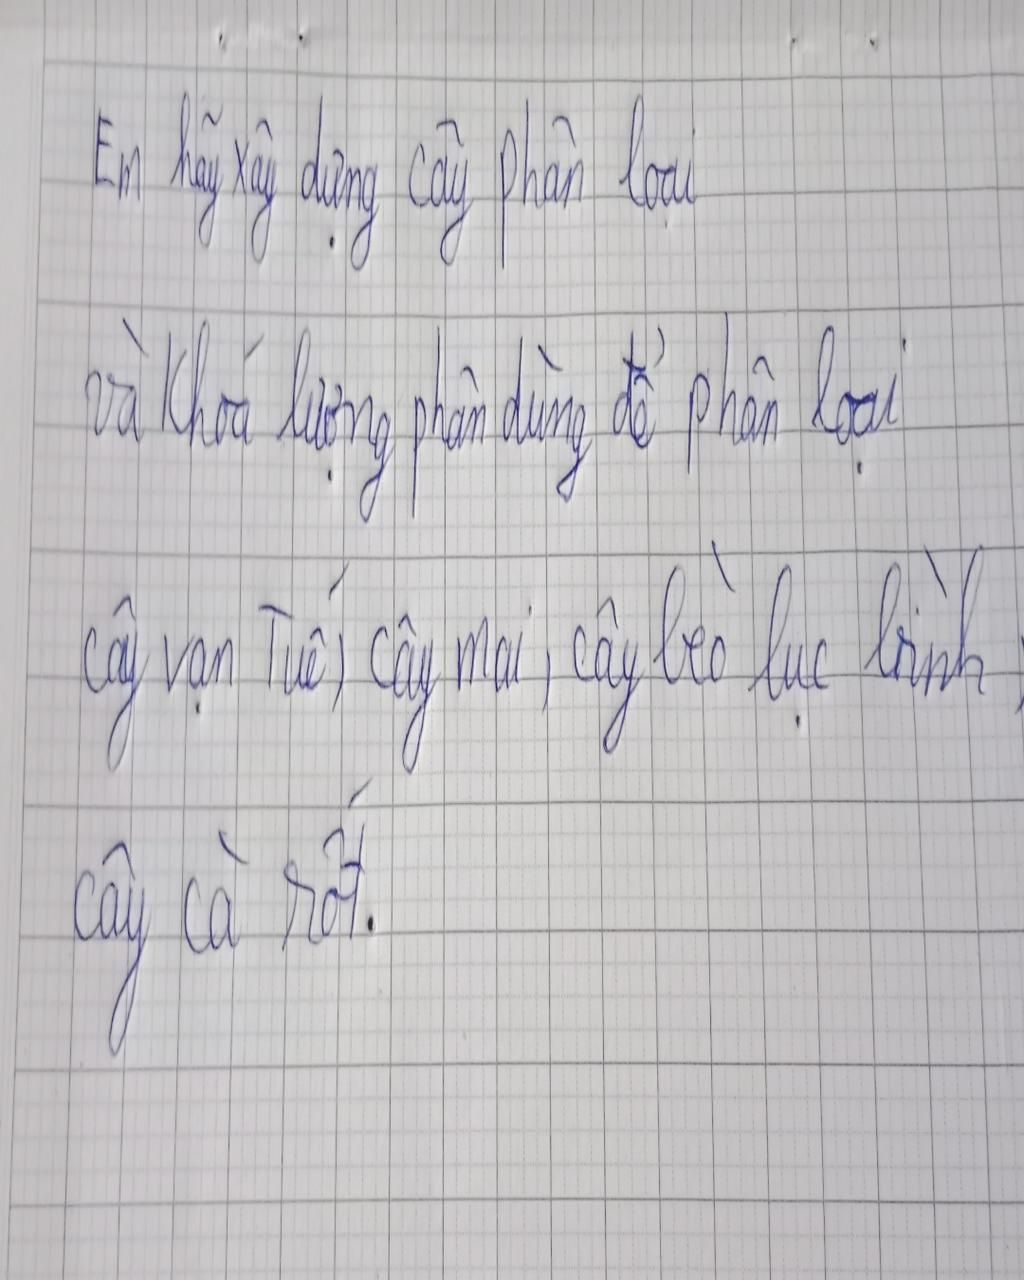 Em hãy xây dựng cây phân loại
và Khoá lượng phân dùng để phân loại
cây vạn Tuế, cây mai, cây bèo lục bình,
cây cà rốt.